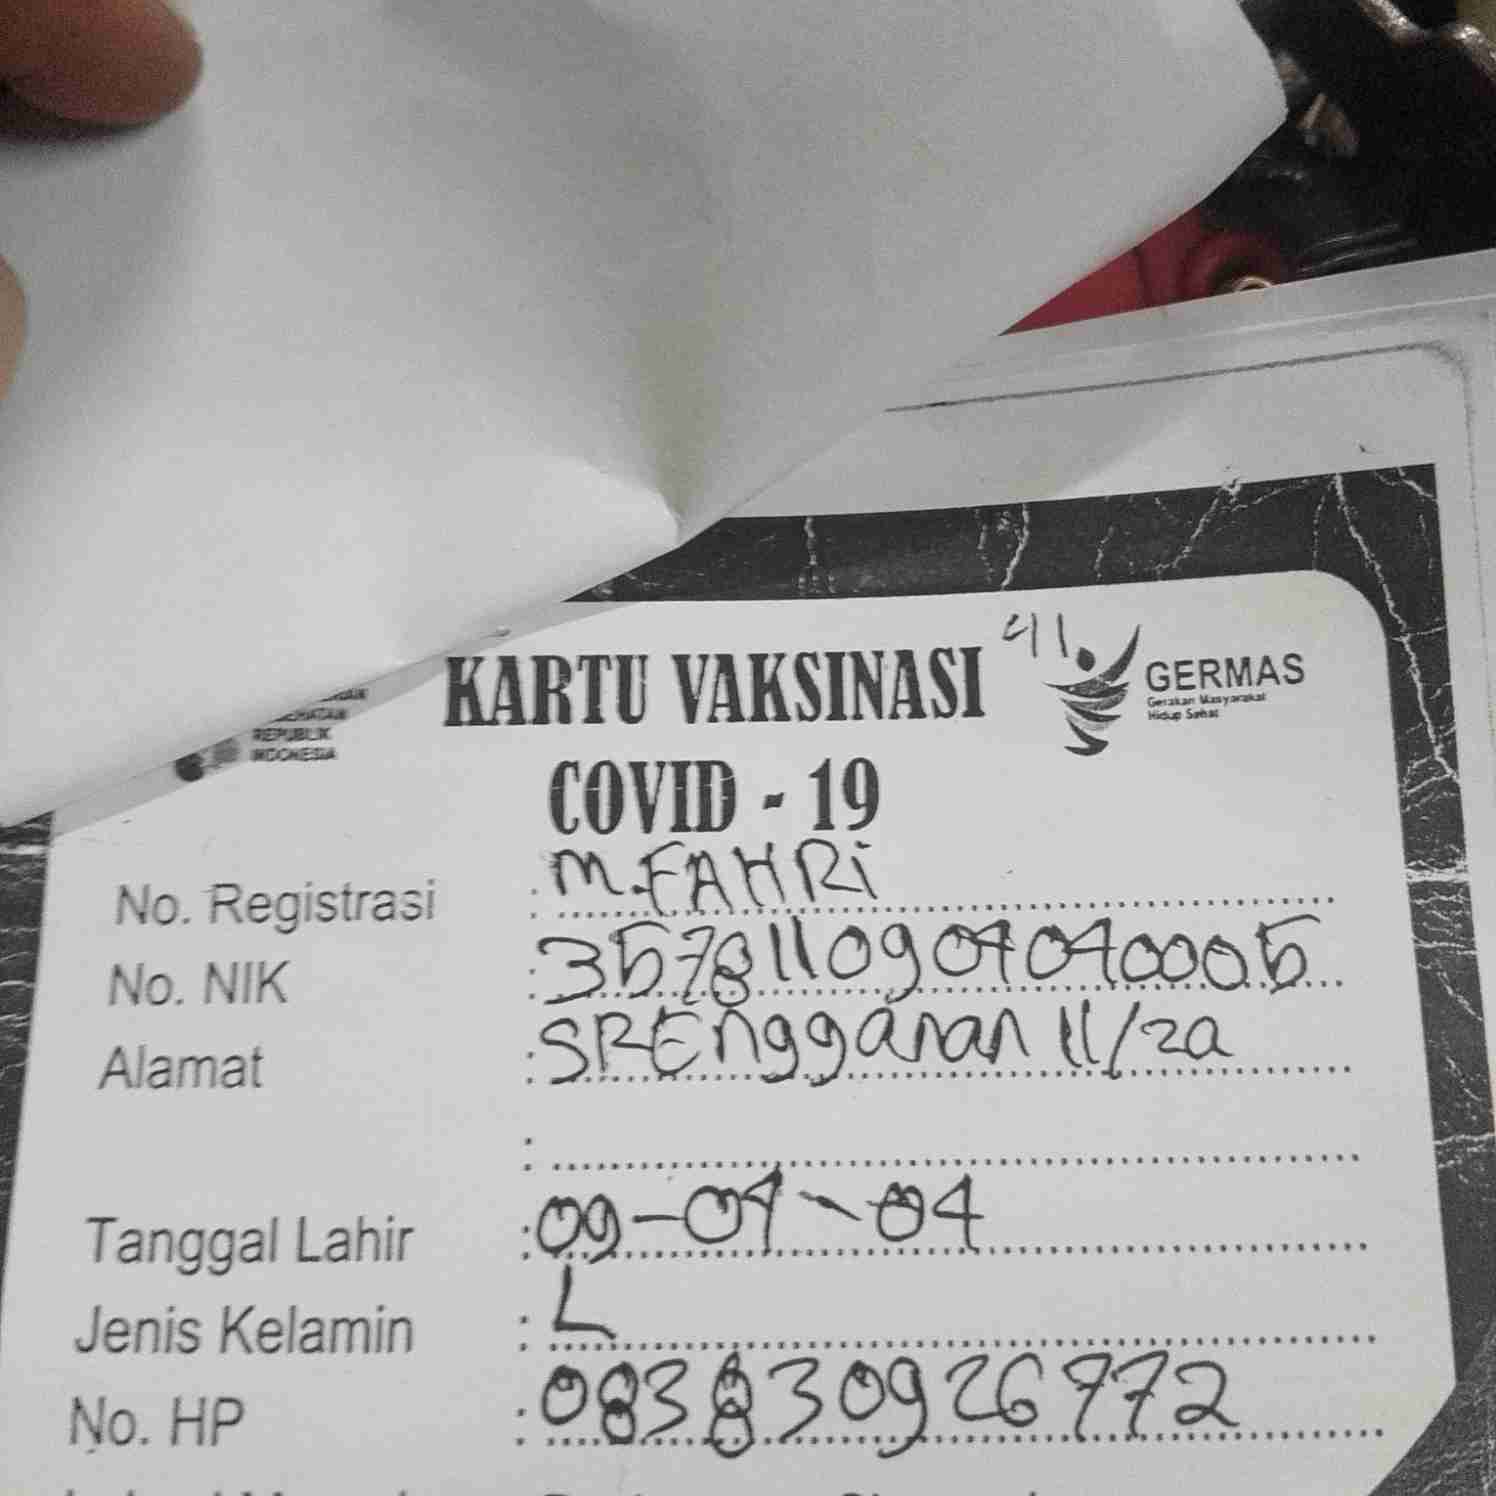 41
KARTU VAKSINASI
COVID - 19
GERMAS
Gerakan Masyarakat
Hidup Sehat
REPUBLIK
INDONESIA
M. FAHRi
No. Registrasi :
No. NIK : 3578110904040005
Alamat : SREnggánan 11/2a
:
Tanggal Lahir : 09-04-04
Jenis Kelamin : L
No. HP : 083830926772